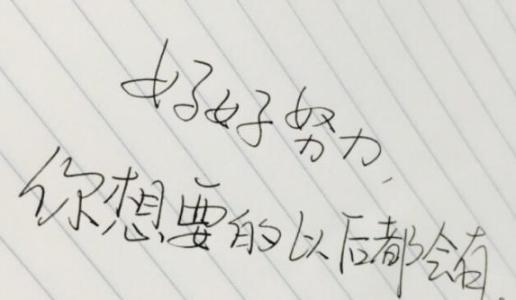 好好努力,
你想要的以后都会有.